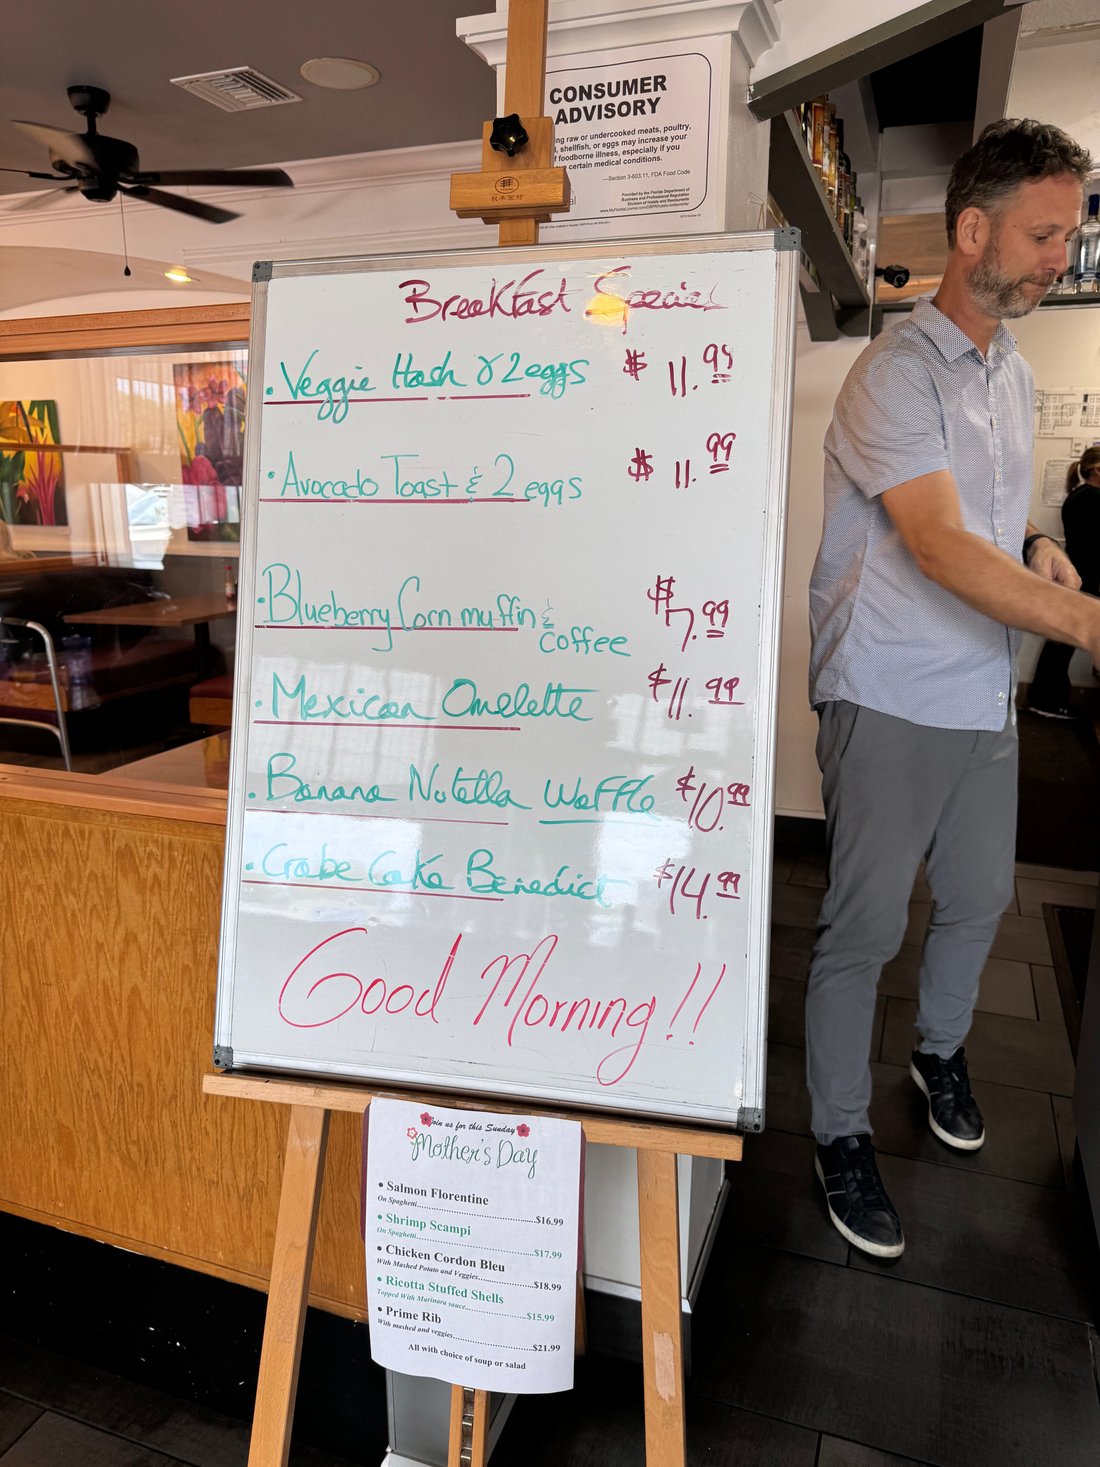 CONSUMER
ADVISORY
ing raw or undercooked meats, poultry,
shellfish, or eggs may increase your
f foodborne illness, especially if you
certain medical conditions.
—Section 3-603.11, FDA Food Code
Provided by the Florida Department of
Business and Professional Regulation
Division of Hotels and Restaurants
Breakfast Special
• Veggie Hash & 2 eggs $ 11.99
• Avocado Toast & 2 eggs $ 11.99
• Blueberry Corn muffin & $7.99
coffee
• Mexican Omelette $11.99
• Banana Nutella Waffle $10.99
• Crabe Cake Benedict $14.99
Good Morning!!
Join us for this Sunday
Mother's Day
• Salmon Florentine
On Spaghetti........$16.99
• Shrimp Scampi
On Spaghetti........$17.99
• Chicken Cordon Bleu
With Mashed Potato and Veggies........$18.99
• Ricotta Stuffed Shells
Topped With Marinara sauce........$15.99
• Prime Rib
With mashed and veggies........$21.99
All with choice of soup or salad